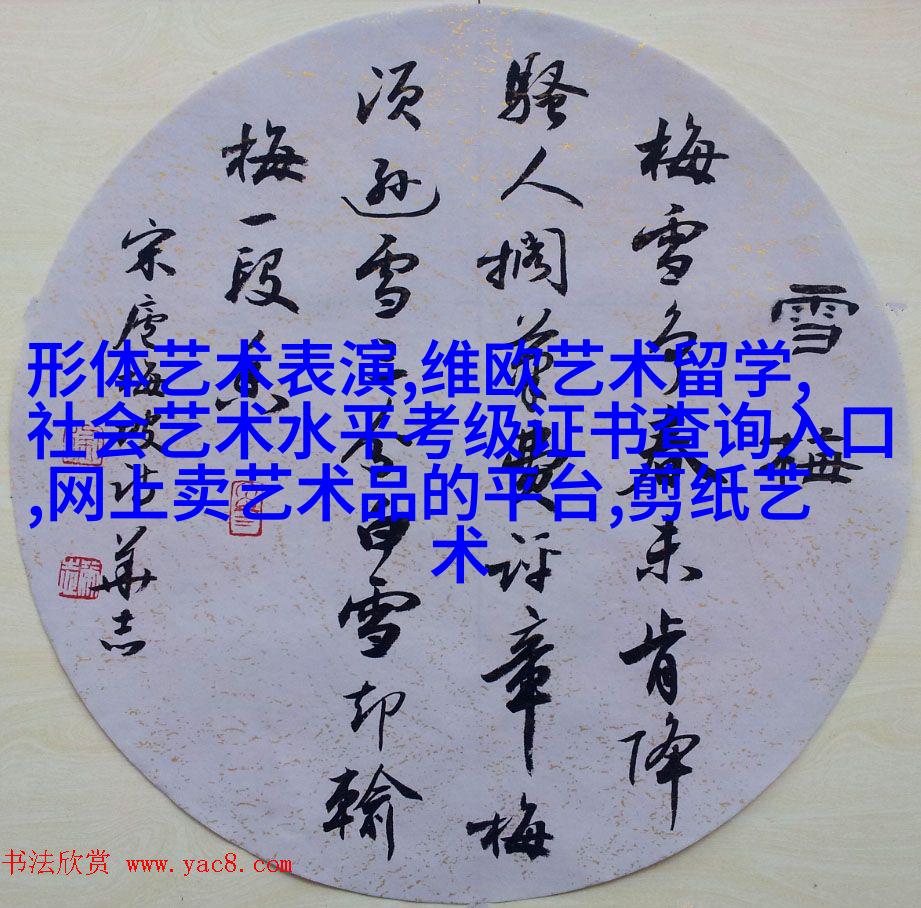 雪梅
梅雪争春未肯降
骚人搁笔费评章梅
须逊雪三分白雪却输
梅一段香
宋卢梅坡诗华志
形体艺术表演,维欧艺术留学,
社会艺术水平考级证书查询入口
,网上卖艺术品的平台,剪纸艺
术
书法欣赏 www.yac8.com